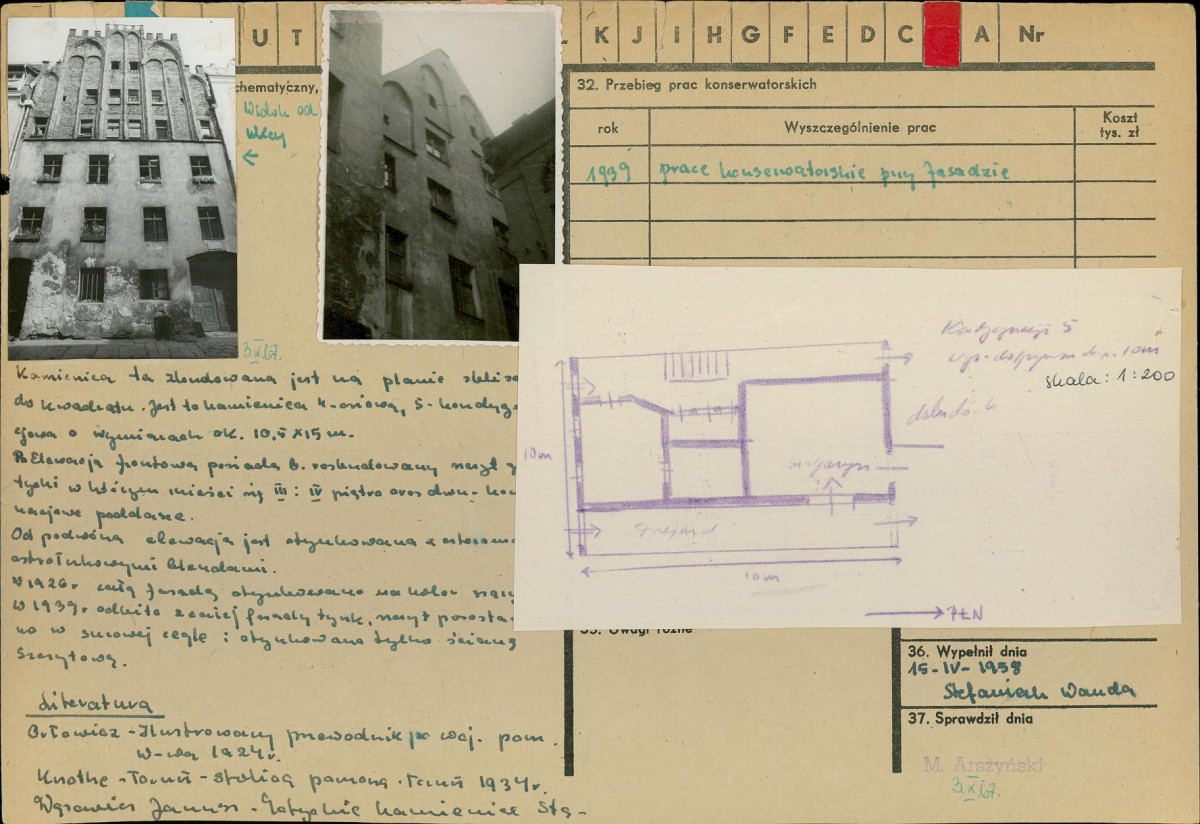 U T
L K J I H G F E D C A Nr
chematyczny,
Widok od
ulicy
32. Przebieg prac konserwatorskich
rok
Wyszczególnienie prac
Koszt
tys. zł
1939 prace konserwatorskie przy fasadzie
3.X.67.
Kamienica ta zbudowana jest na planie zbliżo
do kwadratu. Jest to kamienica 4-osiowa, 5-kondygn
cjowa o wymiarach ok. 10,5 x 15 m.
Elewacja frontowa posiada b. rozbudowany szczyt g
tycki w którym mieści się III i IV piętro oraz dwu-kon
nacjowe poddasze.
Od podwórza elewacja jest otynkowana z
ostrołukowymi blendami.
W 1926r całą fasadę otynkowano na kolor
W 1939r odbito z całej fasady tynk, szczyt pozosta
no w surowej cegle i otynkowano tylko ścianę
szczytową.
Literatura
Orłowicz - Ilustrowany przewodnik po woj. pom.
W-wa 1924r.
Knothe - Toruń - stolica pomorza. Toruń 1934r.
Janusz - Gotyckie kamienice
Kondygnacji 5
10m
skala: 1:200
10m
przejazd
10m
PŁN
35. Uwagi różne
36. Wypełnił dnia
15-IV-1958
Stefaniak Wanda
37. Sprawdził dnia
M. Arszyński
3.X.67.